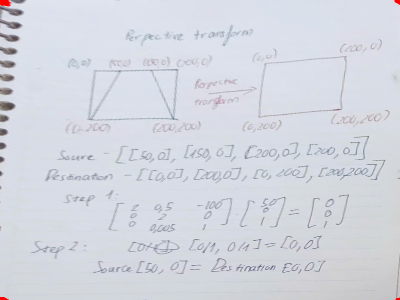 Perpective transform
(0,0) (50,0) (150,0) (200,0)
(0,0) (200,0)
Perpective
transform
(0,200) (200,200)
(0,200) (200,200)
Source - [[50,0], [150,0], [200,0], [200,0]]
Destination - [[0,0], [200,0], [0,200], [200,200]]
Step 1:
[2 0,5 -100] [50] [0]
[0 2 0] · [0] = [0]
[0 0,005 1] [1] [1]
Step 2: [0/1, 0/1] = [0,0]
Source [50, 0] = Destination [0,0]